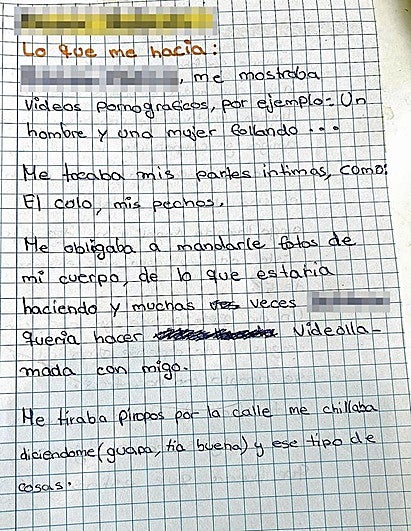 Lo que me hacia:
, me mostraba
videos pornograficos, por ejemplo: Un
hombre y una mujer follando...
Me tocaba mis partes intimas, como:
El culo, mis pechos.
Me obligaba a mandarle fotos de
mi cuerpo, de lo que estaria
haciendo y muchas veces
queria hacer videolla-
mada con migo.
Me tiraba piropos por la calle me chillaba
diciendome (guapa, tia buena) y ese tipo de
cosas.